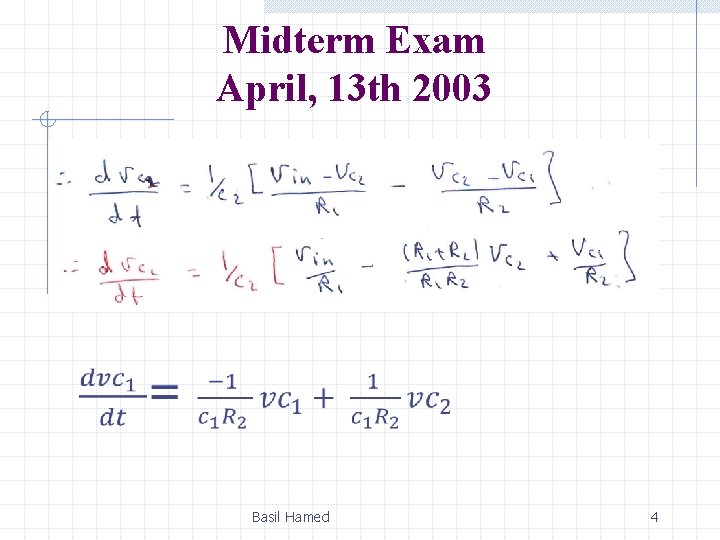 Midterm Exam
April, 13th 2003
∴ dVc₂/dt = 1/c₂ [ (Vin − Vc₂)/R₁ − (Vc₂ − Vc₁)/R₂ ]
∴ dVc₂/dt = 1/c₂ [ Vin/R₁ − (R₁+R₂)/(R₁R₂) Vc₂ + Vc₁/R₂ ]
dvc₁/dt = −1/(c₁R₂) vc₁ + 1/(c₁R₂) vc₂
Basil Hamed 4